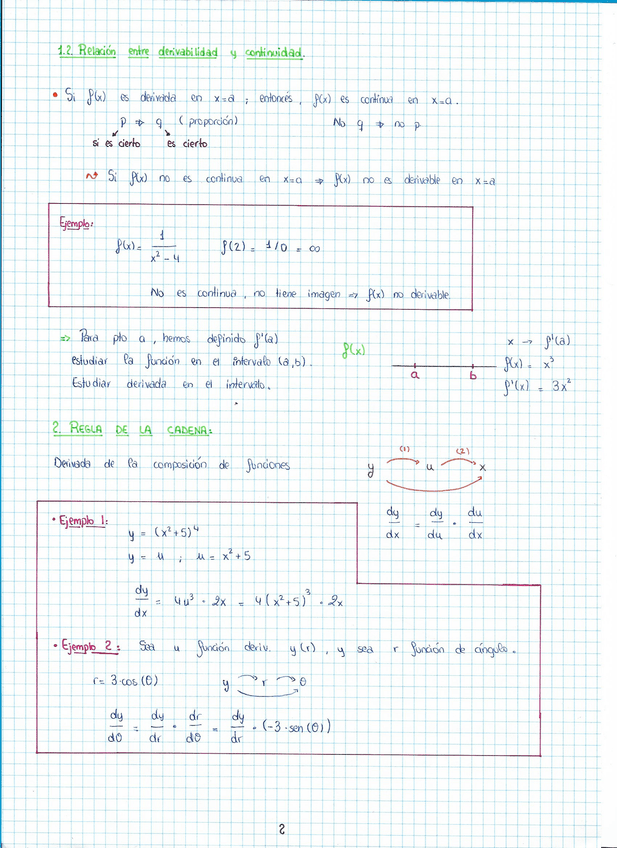 1.2. Relación entre derivabilidad y continuidad.
• Si f(x) es derivada en x=a ; entonces, f(x) es continua en x=a.
p ⇒ q (proporción) No q ⇒ no p
si es cierto es cierto
Si f(x) no es continua en x=a ⇒ f(x) no es derivable en x=a
Ejemplo:
f(x) = 1 / (x² - 4) f(2) = 1/0 = ∞
No es continua, no tiene imagen ⇒ f(x) no derivable.
⇒ Para pto a, hemos definido f'(a)
estudiar la función en el intervalo (a,b).
Estudiar derivada en el intervalo.
f(x)
a b
x → f'(a)
f(x) = x³
f'(x) = 3x²
2. REGLA DE LA CADENA:
Derivada de la composición de funciones
(1) (2)
y u x
dy/dx = dy/du · du/dx
• Ejemplo 1:
y = (x²+5)⁴
y = u ; u = x²+5
dy/dx = 4u³ · 2x = 4(x²+5)³ · 2x
• Ejemplo 2: Sea u función deriv. y(r), y sea r función de ángulo.
r = 3·cos(θ) y r θ
dy/dθ = dy/dr · dr/dθ = dy/dr · (-3·sen(θ))
2